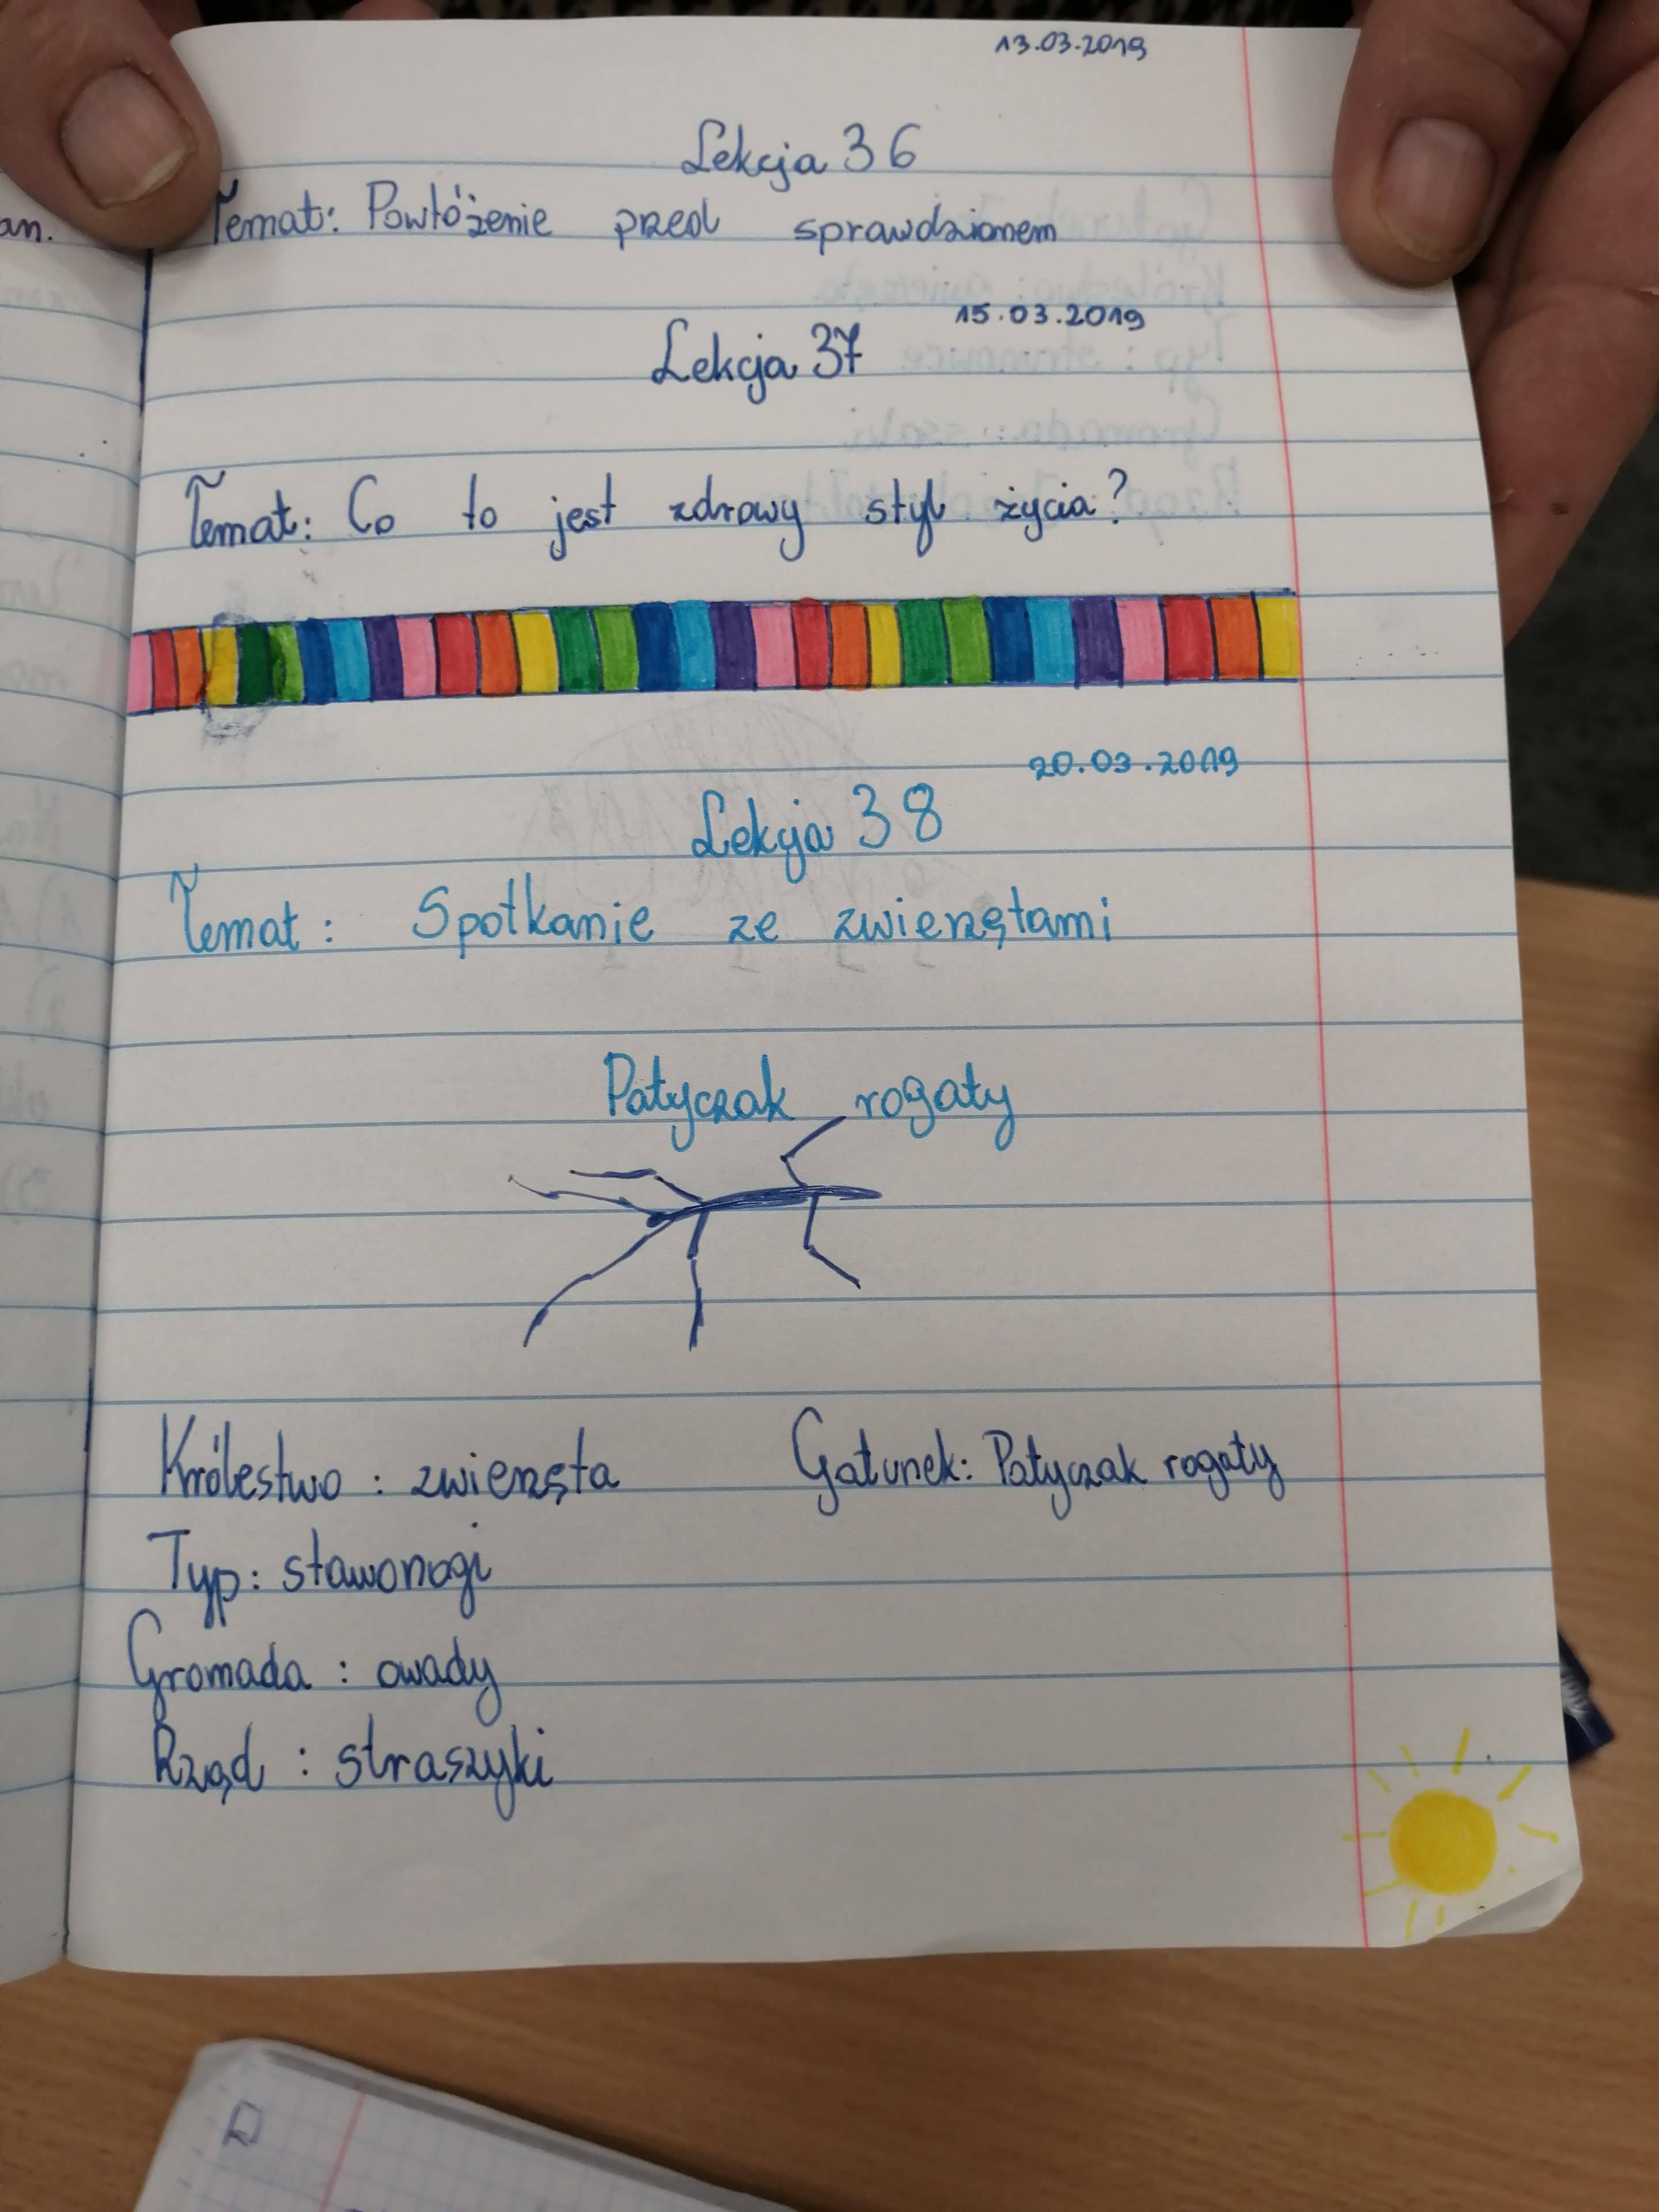 13.03.2019
Lekcja 36
Temat: Powtóżenie przed sprawdzianem
15.03.2019
Lekcja 37
Temat: Co to jest zdrowy styl życia?
20.03.2019
Lekcja 38
Temat: Spotkanie ze zwierzętami
Patyczak rogaty
Królestwo: zwierzęta
Gatunek: Patyczak rogaty
Typ: stawonogi
Gromada: owady
Rząd: straszyki